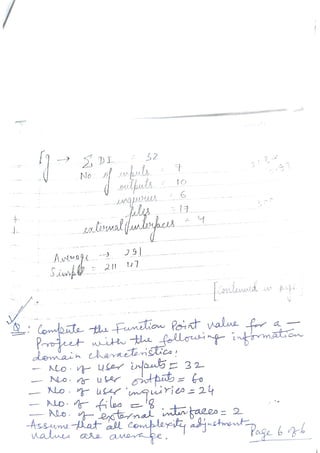 Eg → Σ DI = 52
No of inputs = 7
outputs = 10
inquiries = 6
files = 17
external interfaces = 4
Average → 251
Simple = 211
[Continued in
Q: Compute the Function Point value for a
Project with the following information
domain characteristics:
— No. of user inputs = 32
— No. of user outputs = 60
— No. of user inquiries = 24
— No. of files = 8
— No. of external interfaces = 2
Assume that all complexity adjustment
values are average.
Page 6 of 6